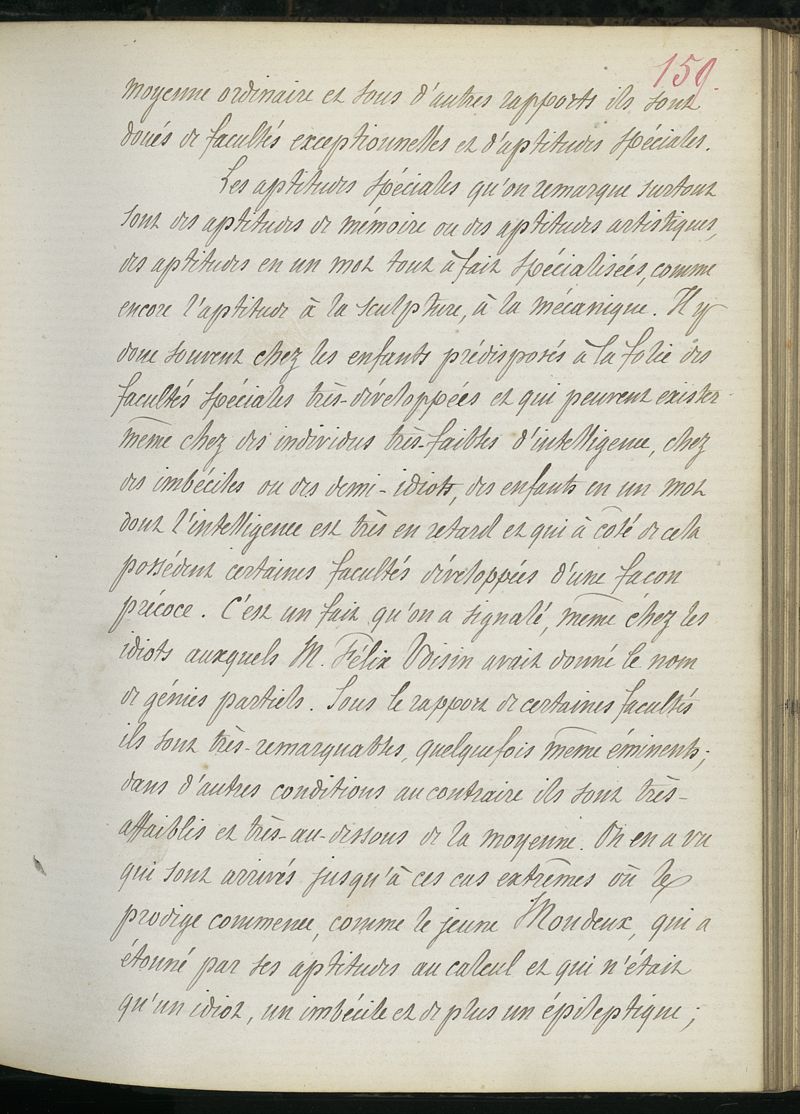 159.
moyenne ordinaire et sous d'autres rapports ils sont
doués de facultés exceptionnelles et d'aptitudes spéciales.
Les aptitudes spéciales qu'on remarque surtout
sont des aptitudes de mémoire ou des aptitudes artistiques,
des aptitudes en un mot tout à fait spécialisées, comme
encore l'aptitude à la sculpture, à la mécanique. Il y
donc souvent chez les enfants prédisposés à la folie des
facultés spéciales très-développées et qui peuvent exister
même chez des individus très-faibles d'intelligence, chez
des imbéciles ou des demi-idiots, des enfants en un mot
dont l'intelligence est très en retard et qui à côté de cela
possèdent certaines facultés développées d'une facon
précoce. C'est un fait qu'on a signalé, même chez les
idiots auxquels M. Félix Voisin avait donné le nom
de génies partiels. Sous le rapport de certaines facultés
ils sont très-remarquables, quelquefois même éminents;
dans d'autres conditions au contraire ils sont très-
affaiblis et très-au-dissous de la moyenne. On en a vu
qui sont arrivés jusqu'à ces cas extrêmes où le
prodige commence, comme le jeune Mondeux, qui a
étonné par ses aptitudes au calcul et qui n'était
qu'un idiot, un imbécile et de plus un épileptique;